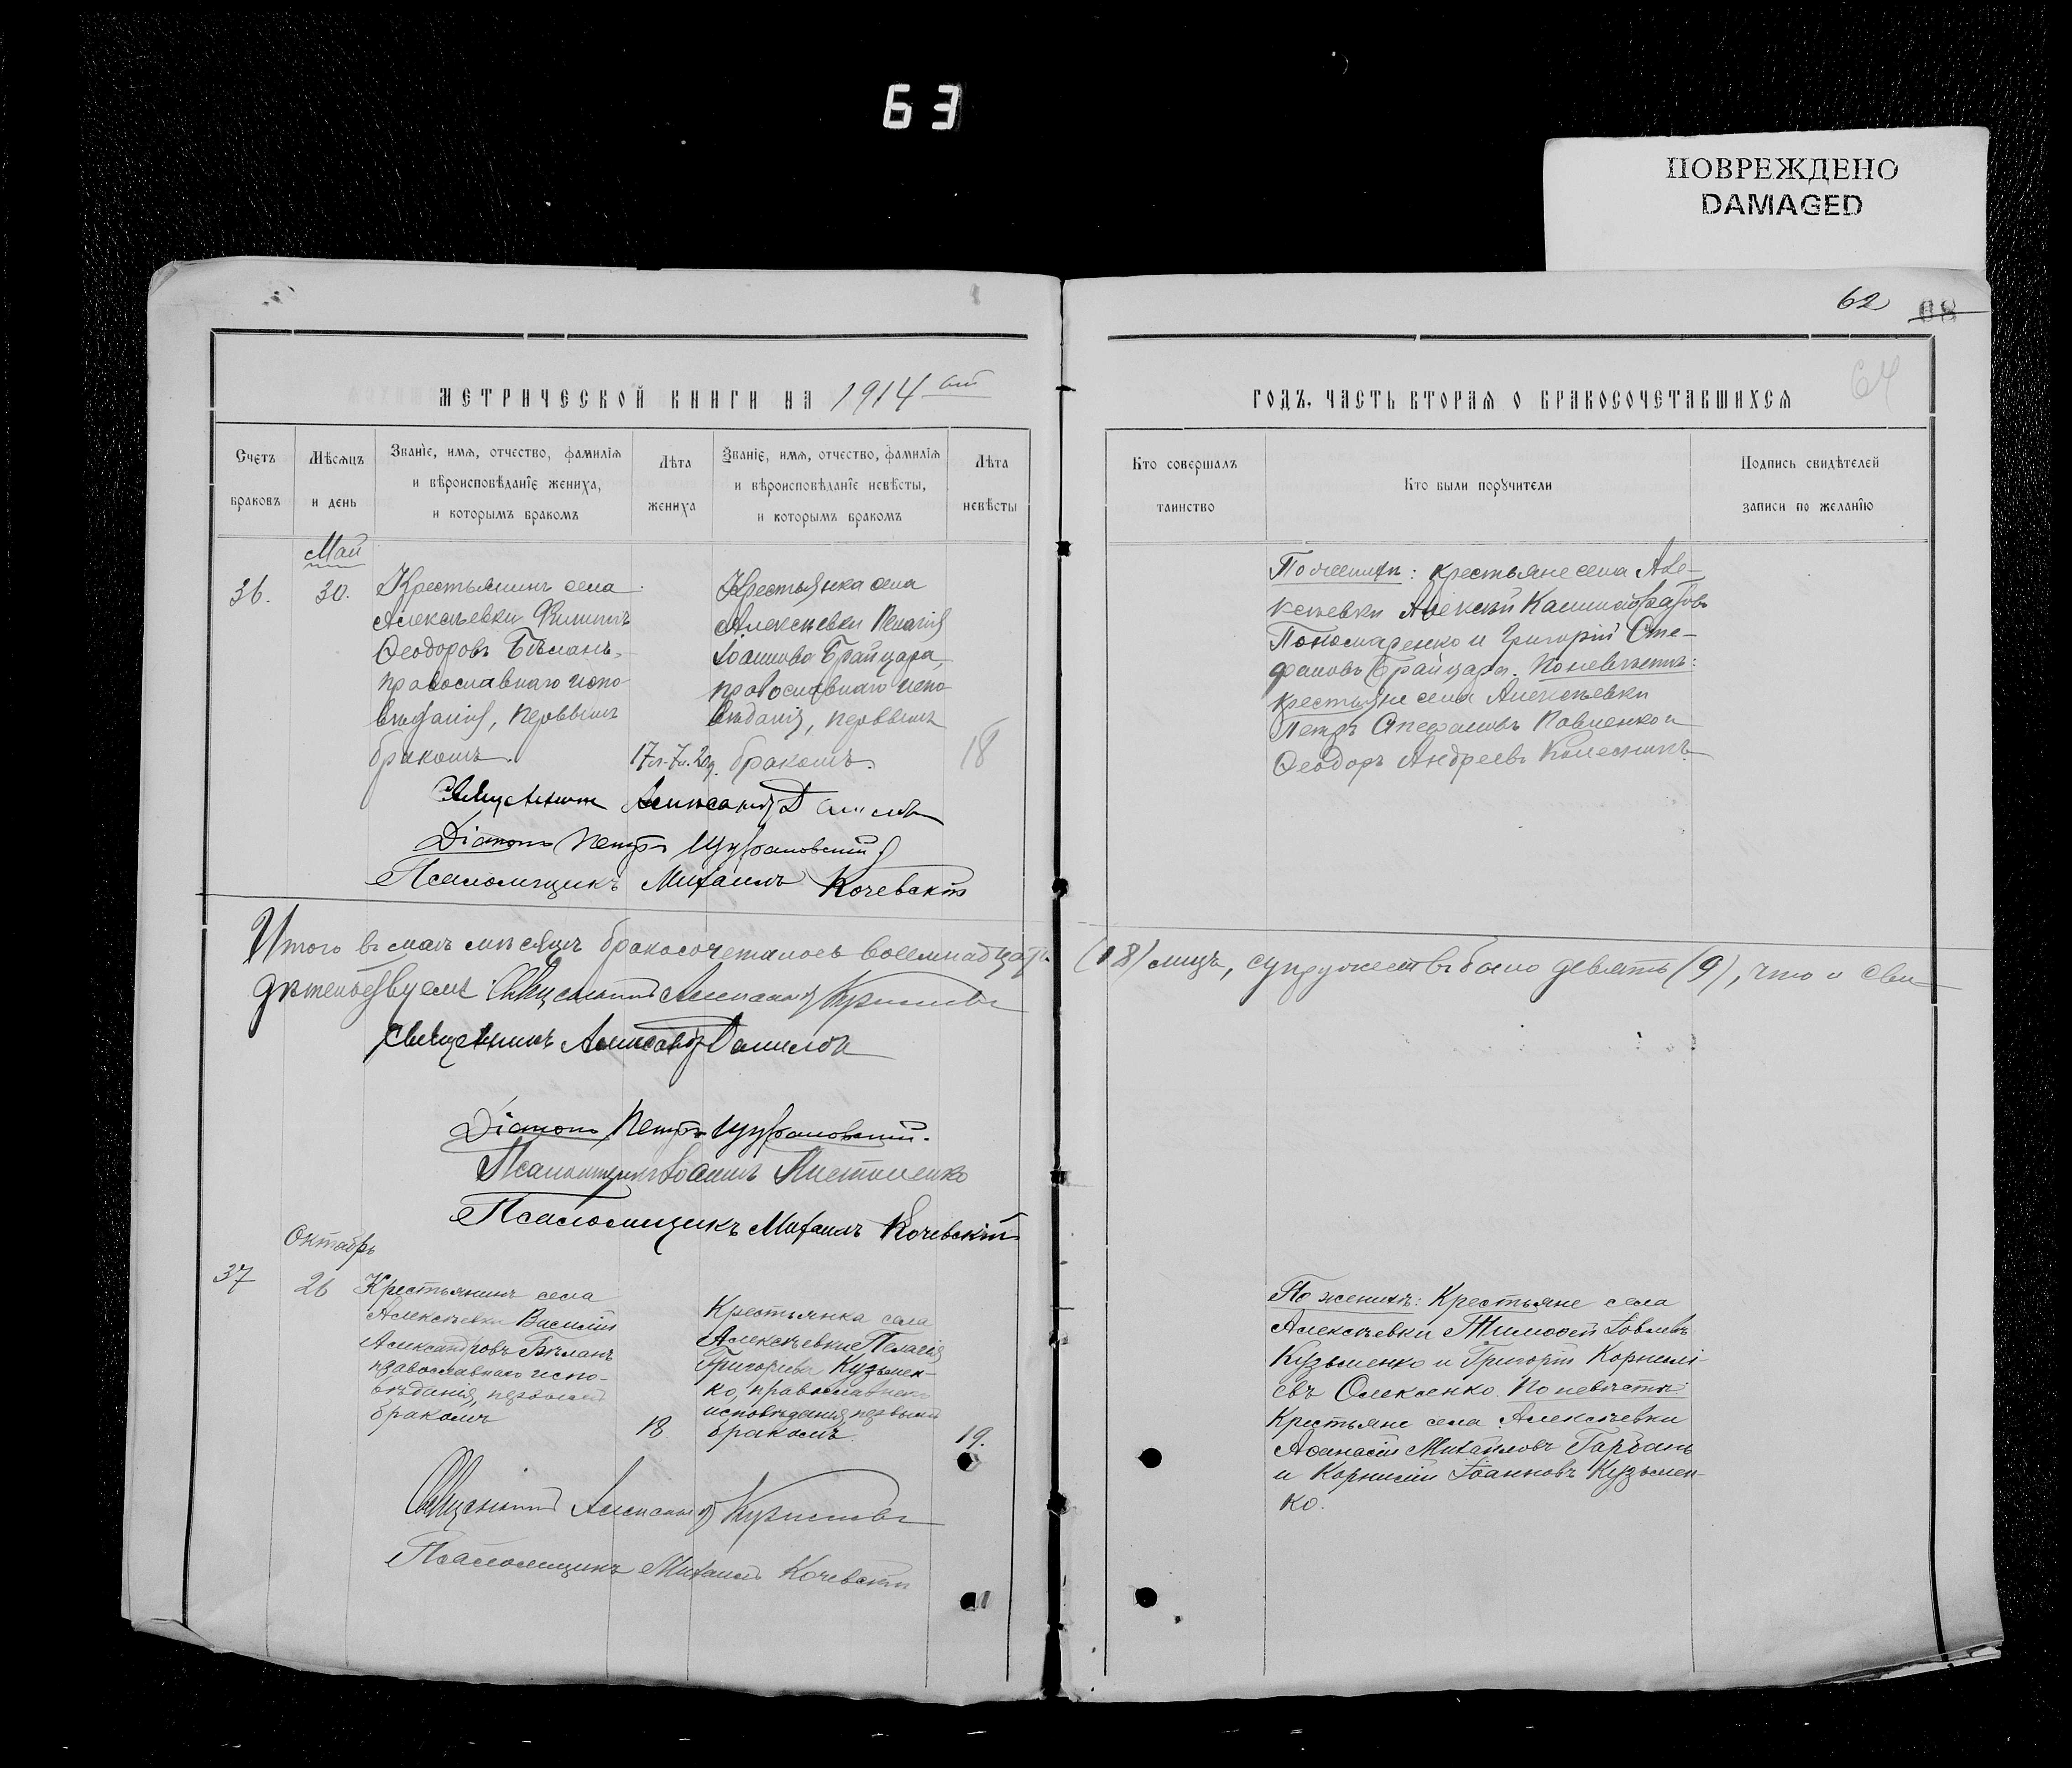 63
ПОВРЕЖДЕНО
DAMAGED
62 68
64
МЕТРИЧЕСКОЙ КНИГИ НА 1914 ый
ГОДЪ, ЧАСТЬ ВТОРАЯ О БРАКОСОЧЕТАВШИХСЯ
Счетъ
браковъ
Мѣсяцъ
и день
Званіе, имя, отчество, фамилія
и вѣроисповѣданіе жениха,
и которымъ бракомъ
Лѣта
жениха
Званіе, имя, отчество, фамилія
и вѣроисповѣданіе невѣсты,
и которымъ бракомъ
Лѣта
невѣсты
Кто совершалъ
таинство
Кто были поручители
Подпись свидѣтелей
записи по желанію
Май
36.
30.
Крестьянинъ села
Алексѣевки Филиппъ
Ѳеодоровъ Бѣланъ,
православнаго испо-
вѣданія, первымъ
бракомъ.
17 л. 7 м. 20 д.
Крестьянка села
Алексѣевки Пелагія
Іоаннова Брайцара,
православнаго испо-
вѣданія, первымъ
бракомъ.
18
По женихѣ: крестьяне села Але-
ксѣевки Алексій
Пономаренко и Григорій Сте-
фановъ Брайцара. По невѣстѣ:
крестьяне села Алексѣевки
Петръ Стефановъ Павленко и
Ѳеодоръ Андреевъ Колесникъ.
Священникъ Александръ Данилов
Діаконъ Петръ
Псаломщикъ Михаилъ Кочевскій
Итого въ маѣ мѣсяцѣ бракосочеталось восемнадцать (18) лицъ, супружествъ было девять (9), что и сви-
дѣтельствуемъ: Священникъ Александръ
Священникъ Александръ Данилов
Діаконъ Петръ
Псаломщикъ Іоаннъ
Псаломщикъ Михаилъ Кочевскій
Октябрь
37
26
Крестьянинъ села
Алексѣевки Василій
Александровъ Бѣланъ
православнаго испо-
вѣданія, первымъ
бракомъ
18
Крестьянка села
Алексѣевки Пелагія
Григорьева Кузьмен-
ко, православнаго
исповѣданія, первымъ
бракомъ.
19.
По женихѣ: Крестьяне села
Алексѣевки Тимоѳей Іовлевъ
Кузьменко и Григорій Корнилі-
евъ Олексенко. По невѣстѣ:
Крестьяне села Алексѣевки
Аѳанасій Михайловъ Гарбань
и Корнилій Іоанновъ Кузьмен-
ко.
Священникъ Александръ
Псаломщикъ Михаилъ Кочевскій